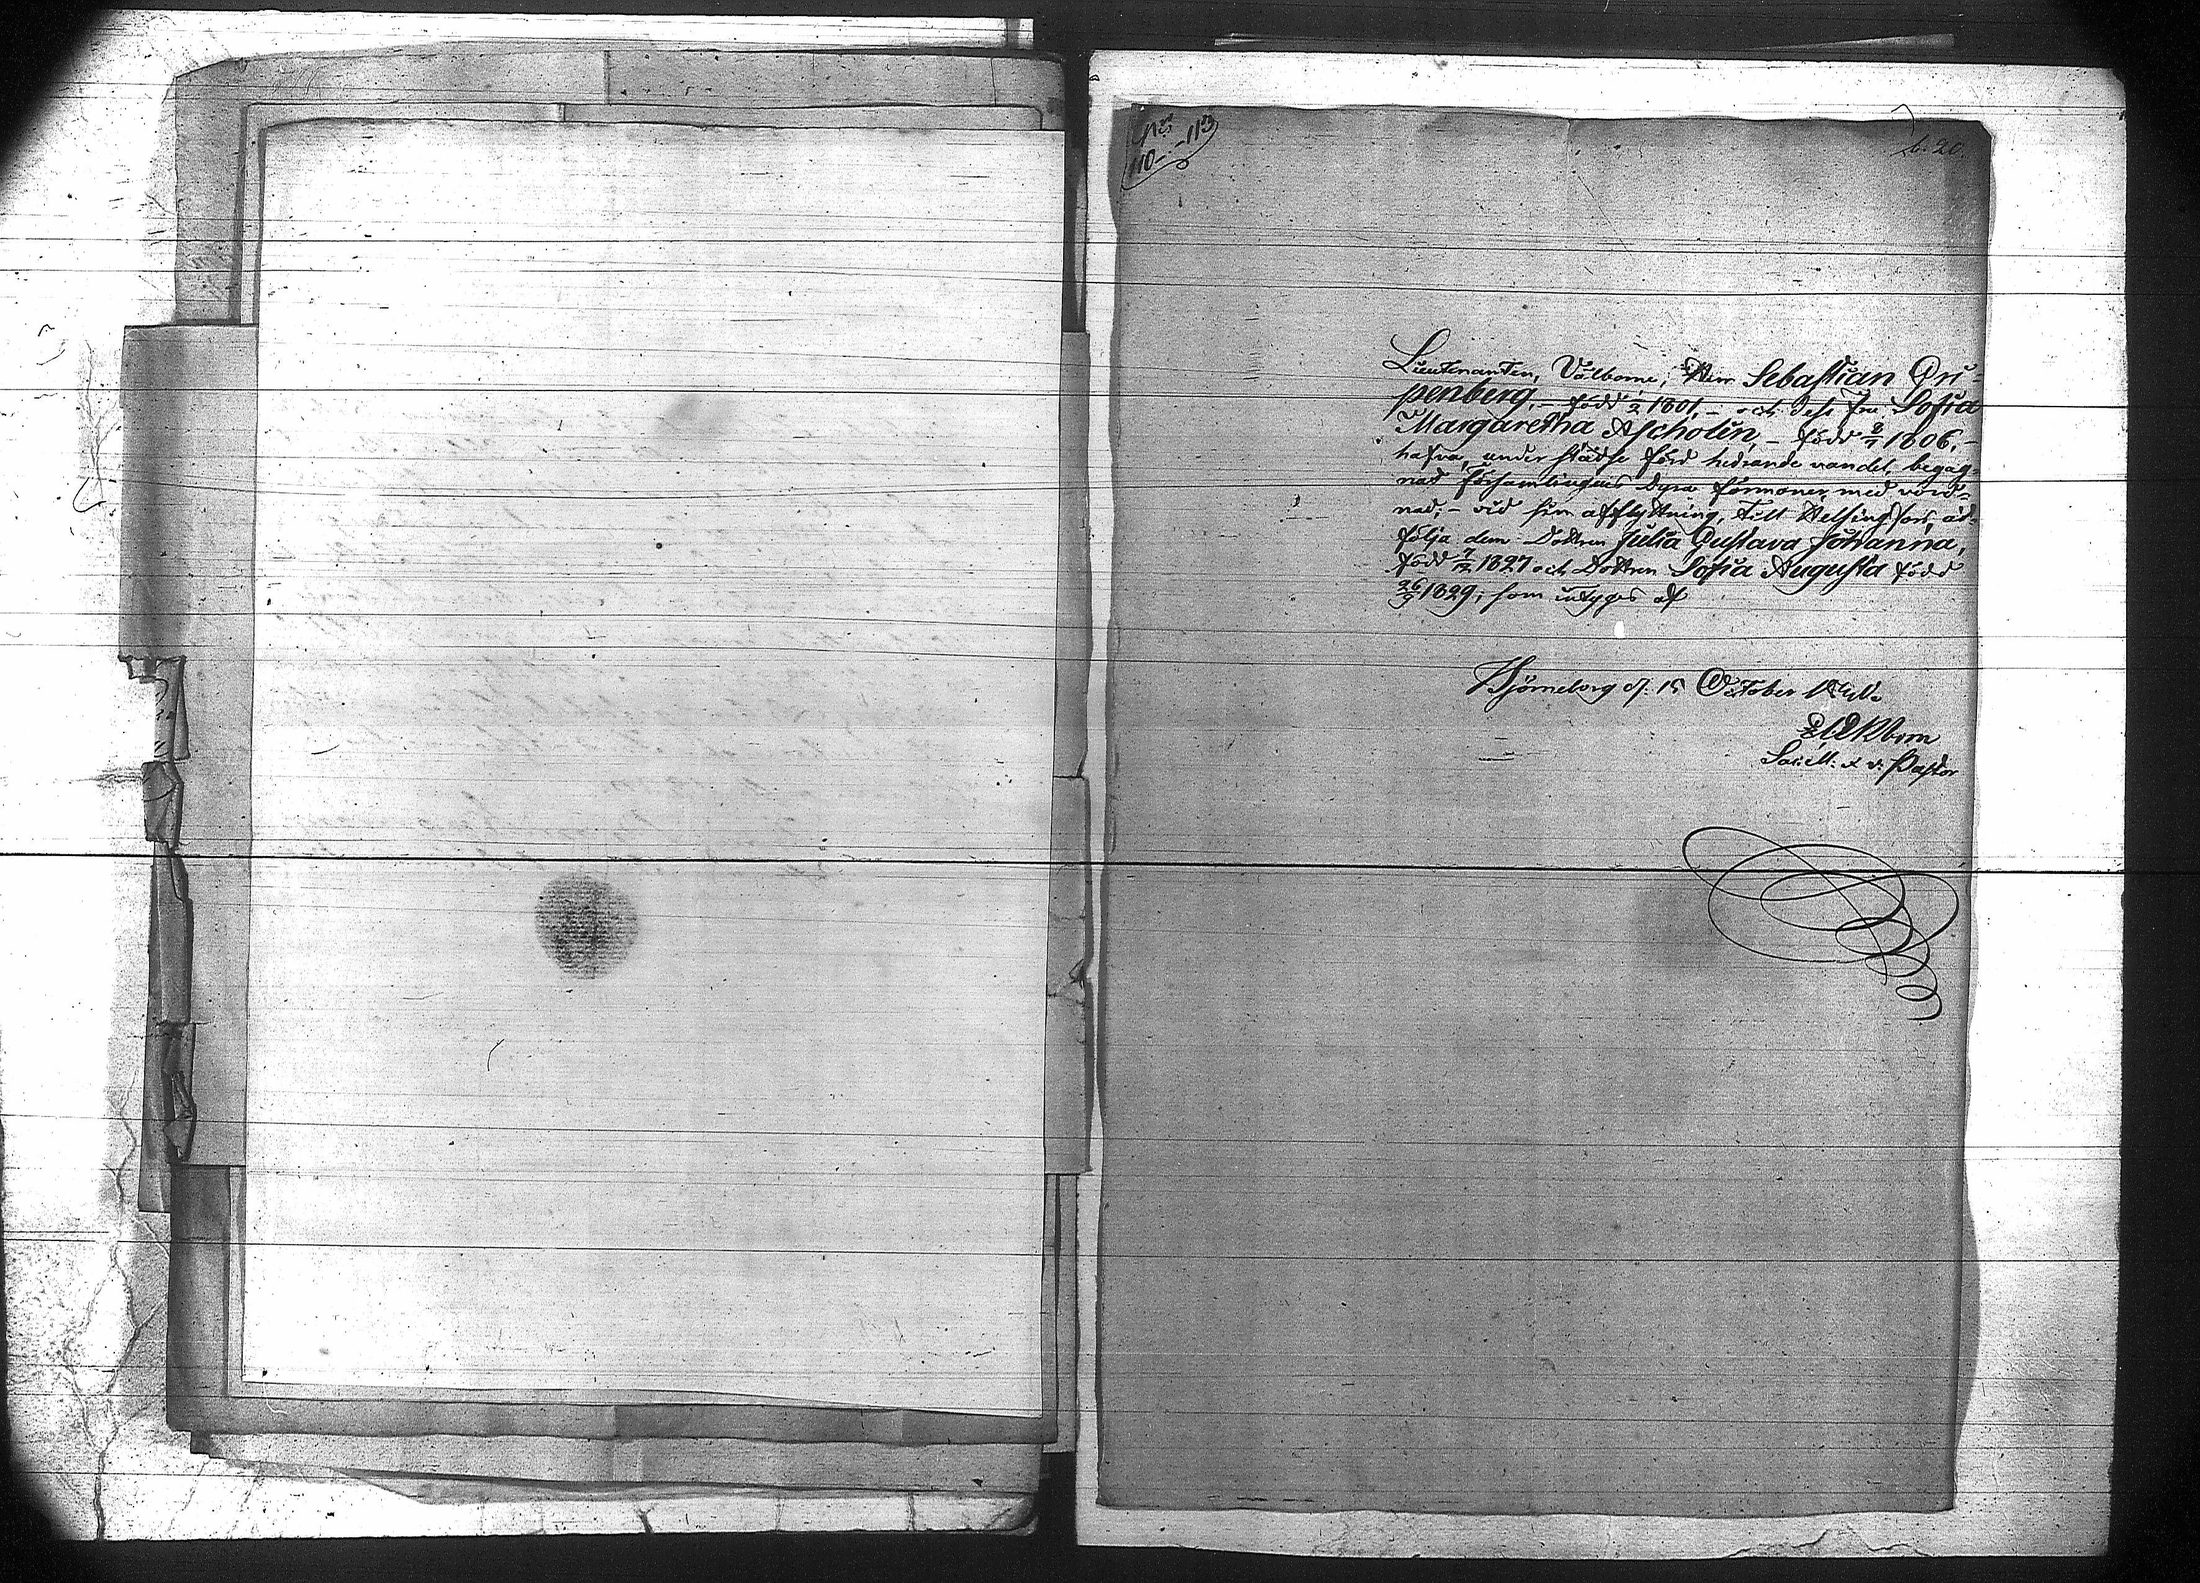 N:o
110–113
b. 20.
Lieutenanten, Välborne, Herr Sebastian Gri-
penberg, – född 1/2 1801, – och dess Fru Sofia
Margaretha Ascholin, – född 8/11 1806, –
hafva, under städse förd hedrande vandel, begag-
nat församlingens dyra förmoner med vörd-
nad; – vid sin afflyttning till Helsingfors, åt-
följa dem Dottren Julia Gustava Johanna,
född 7/12 1827 och Dottren Sofia Augusta född
26/9 1829; som intygas af
Björneborg d. 15 October
Sac: M: & v: Pastor